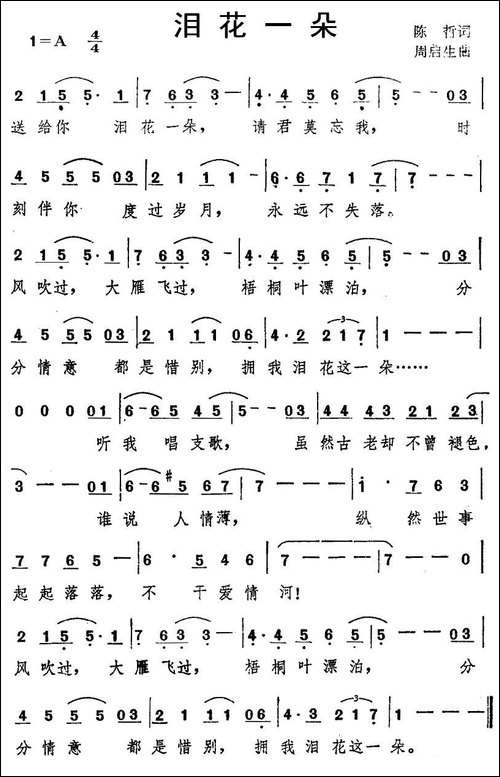 泪花一朵
1=A 4/4
陈哲词
周启生曲
2 1 5 5· 1 | 7 6 3 3 — | 4· 4 5 6 5 | 5 — — 0 3 |
送给你 泪花一朵, 请君莫忘我, 时
4 5 5 5 0 3 | 2 1 1 1 — | 6· 6 7 1 7 | 7 — — — |
刻伴你 度过岁月, 永远不失落。
2 1 5 5· 1 | 7 6 3 3 — | 4· 4 5 5 6 | 5 — — 0 3 |
风吹过, 大雁飞过, 梧桐叶漂泊, 分
4 5 5 5 0 3 | 2 1 1 1 0 6 | 4· 2 2 1 7 | 1 — — — |
分情意 都是惜别, 拥我泪花这一朵……
0 0 0 0 1 | 6 6 5 4 5 | 5 — — 0 3 | 4 4 4 3 2 1 2 3 |
听我 唱支歌, 虽然古老却不曾褪色,
3 — — 0 1 | 6 6 #5 6 7 | 7 — — — | 1· 7 6 3 |
谁说 人情薄, 纵 然世事
7 7 6 5 — | 6· 5 4 6 | 7 — — — | 7 — — 0 |
起起落落, 不 干爱情河!
2 1 5 5· 1 | 7 6 3 3 — | 4· 4 5 5 6 | 5 — — 0 3 |
风吹过, 大雁飞过, 梧桐叶漂泊, 分
4 5 5 5 0 3 | 2 1 1 1 0 6 | 4· 3 2 1 7 | 1 — — — ‖
分情意 都是惜别, 拥我泪花这一朵。